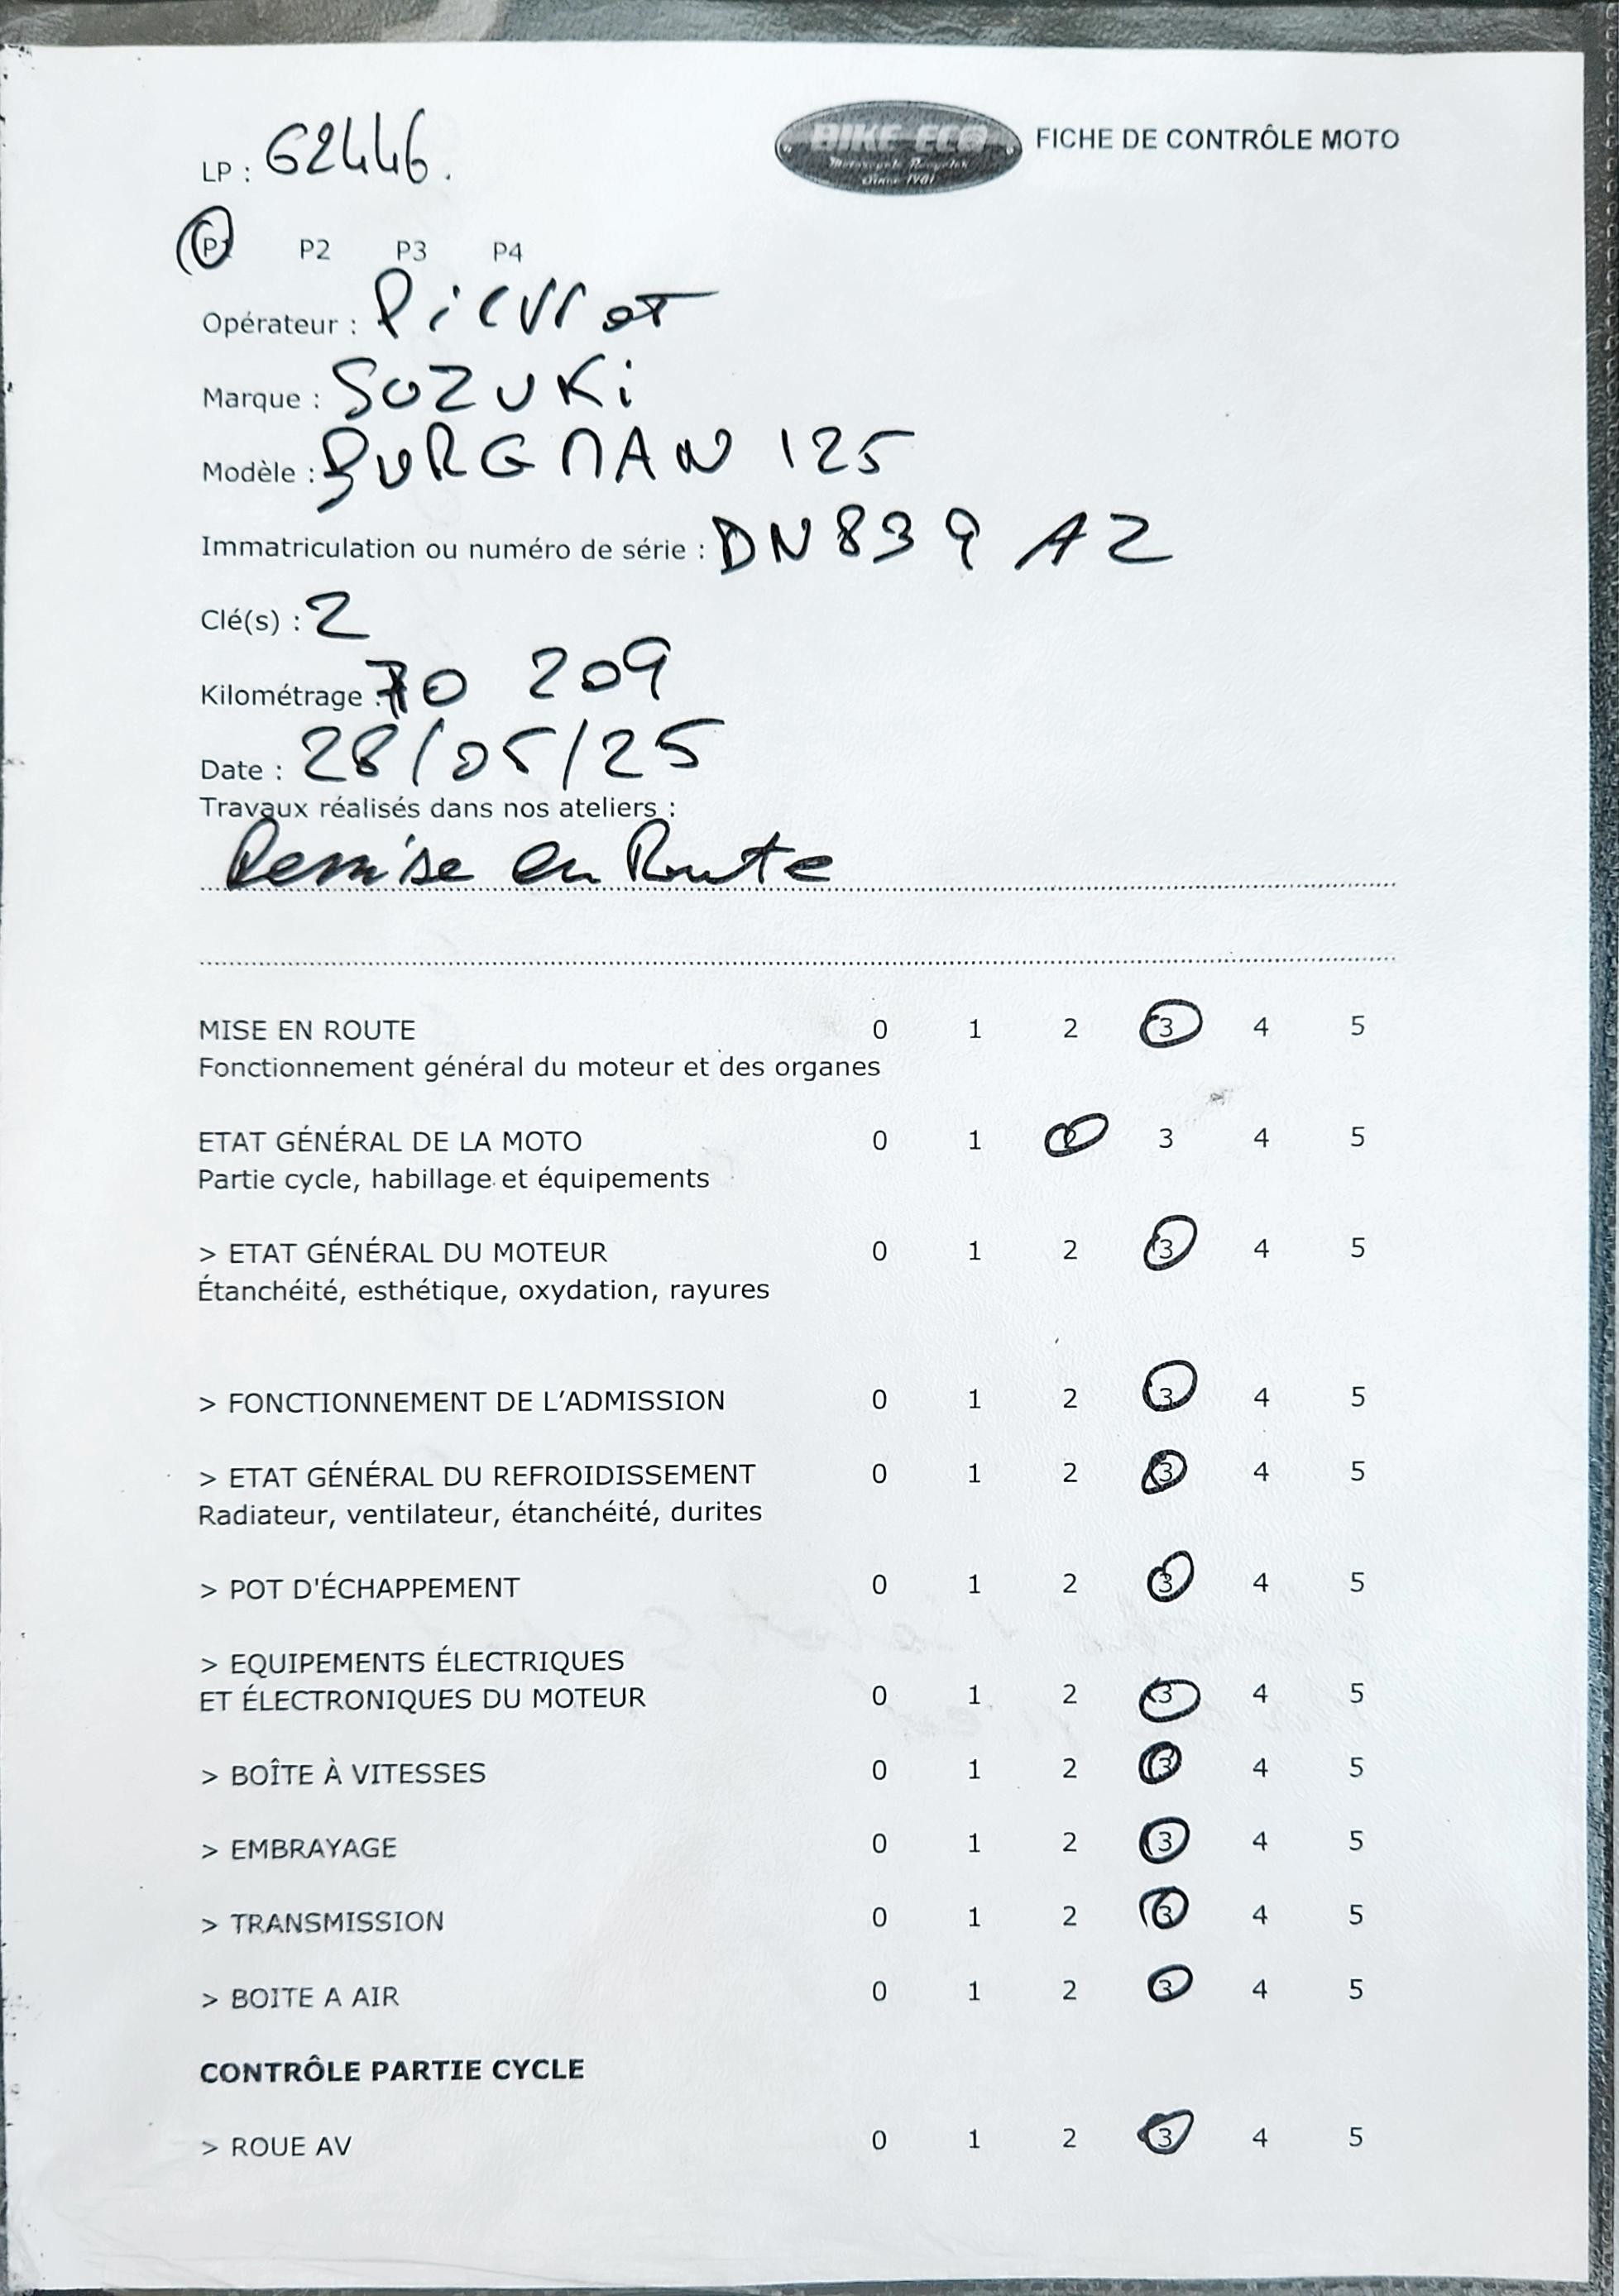 BIKE-ECO
Motorcycle Recycler
Since 1981
FICHE DE CONTRÔLE MOTO
LP : 62446.
P1 P2 P3 P4
Opérateur : Pierrot
Marque : SUZUKi
Modèle : BURGMAN 125
Immatriculation ou numéro de série : DN 839 AZ
Clé(s) : 2
Kilométrage : 70 209
Date : 28/05/25
Travaux réalisés dans nos ateliers :
Remise en Route
MISE EN ROUTE 0 1 2 3 4 5
Fonctionnement général du moteur et des organes
ETAT GÉNÉRAL DE LA MOTO 0 1 2 3 4 5
Partie cycle, habillage et équipements
> ETAT GÉNÉRAL DU MOTEUR 0 1 2 3 4 5
Étanchéité, esthétique, oxydation, rayures
> FONCTIONNEMENT DE L'ADMISSION 0 1 2 3 4 5
> ETAT GÉNÉRAL DU REFROIDISSEMENT 0 1 2 3 4 5
Radiateur, ventilateur, étanchéité, durites
> POT D'ÉCHAPPEMENT 0 1 2 3 4 5
> EQUIPEMENTS ÉLECTRIQUES
ET ÉLECTRONIQUES DU MOTEUR 0 1 2 3 4 5
> BOÎTE À VITESSES 0 1 2 3 4 5
> EMBRAYAGE 0 1 2 3 4 5
> TRANSMISSION 0 1 2 3 4 5
> BOITE A AIR 0 1 2 3 4 5
CONTRÔLE PARTIE CYCLE
> ROUE AV 0 1 2 3 4 5